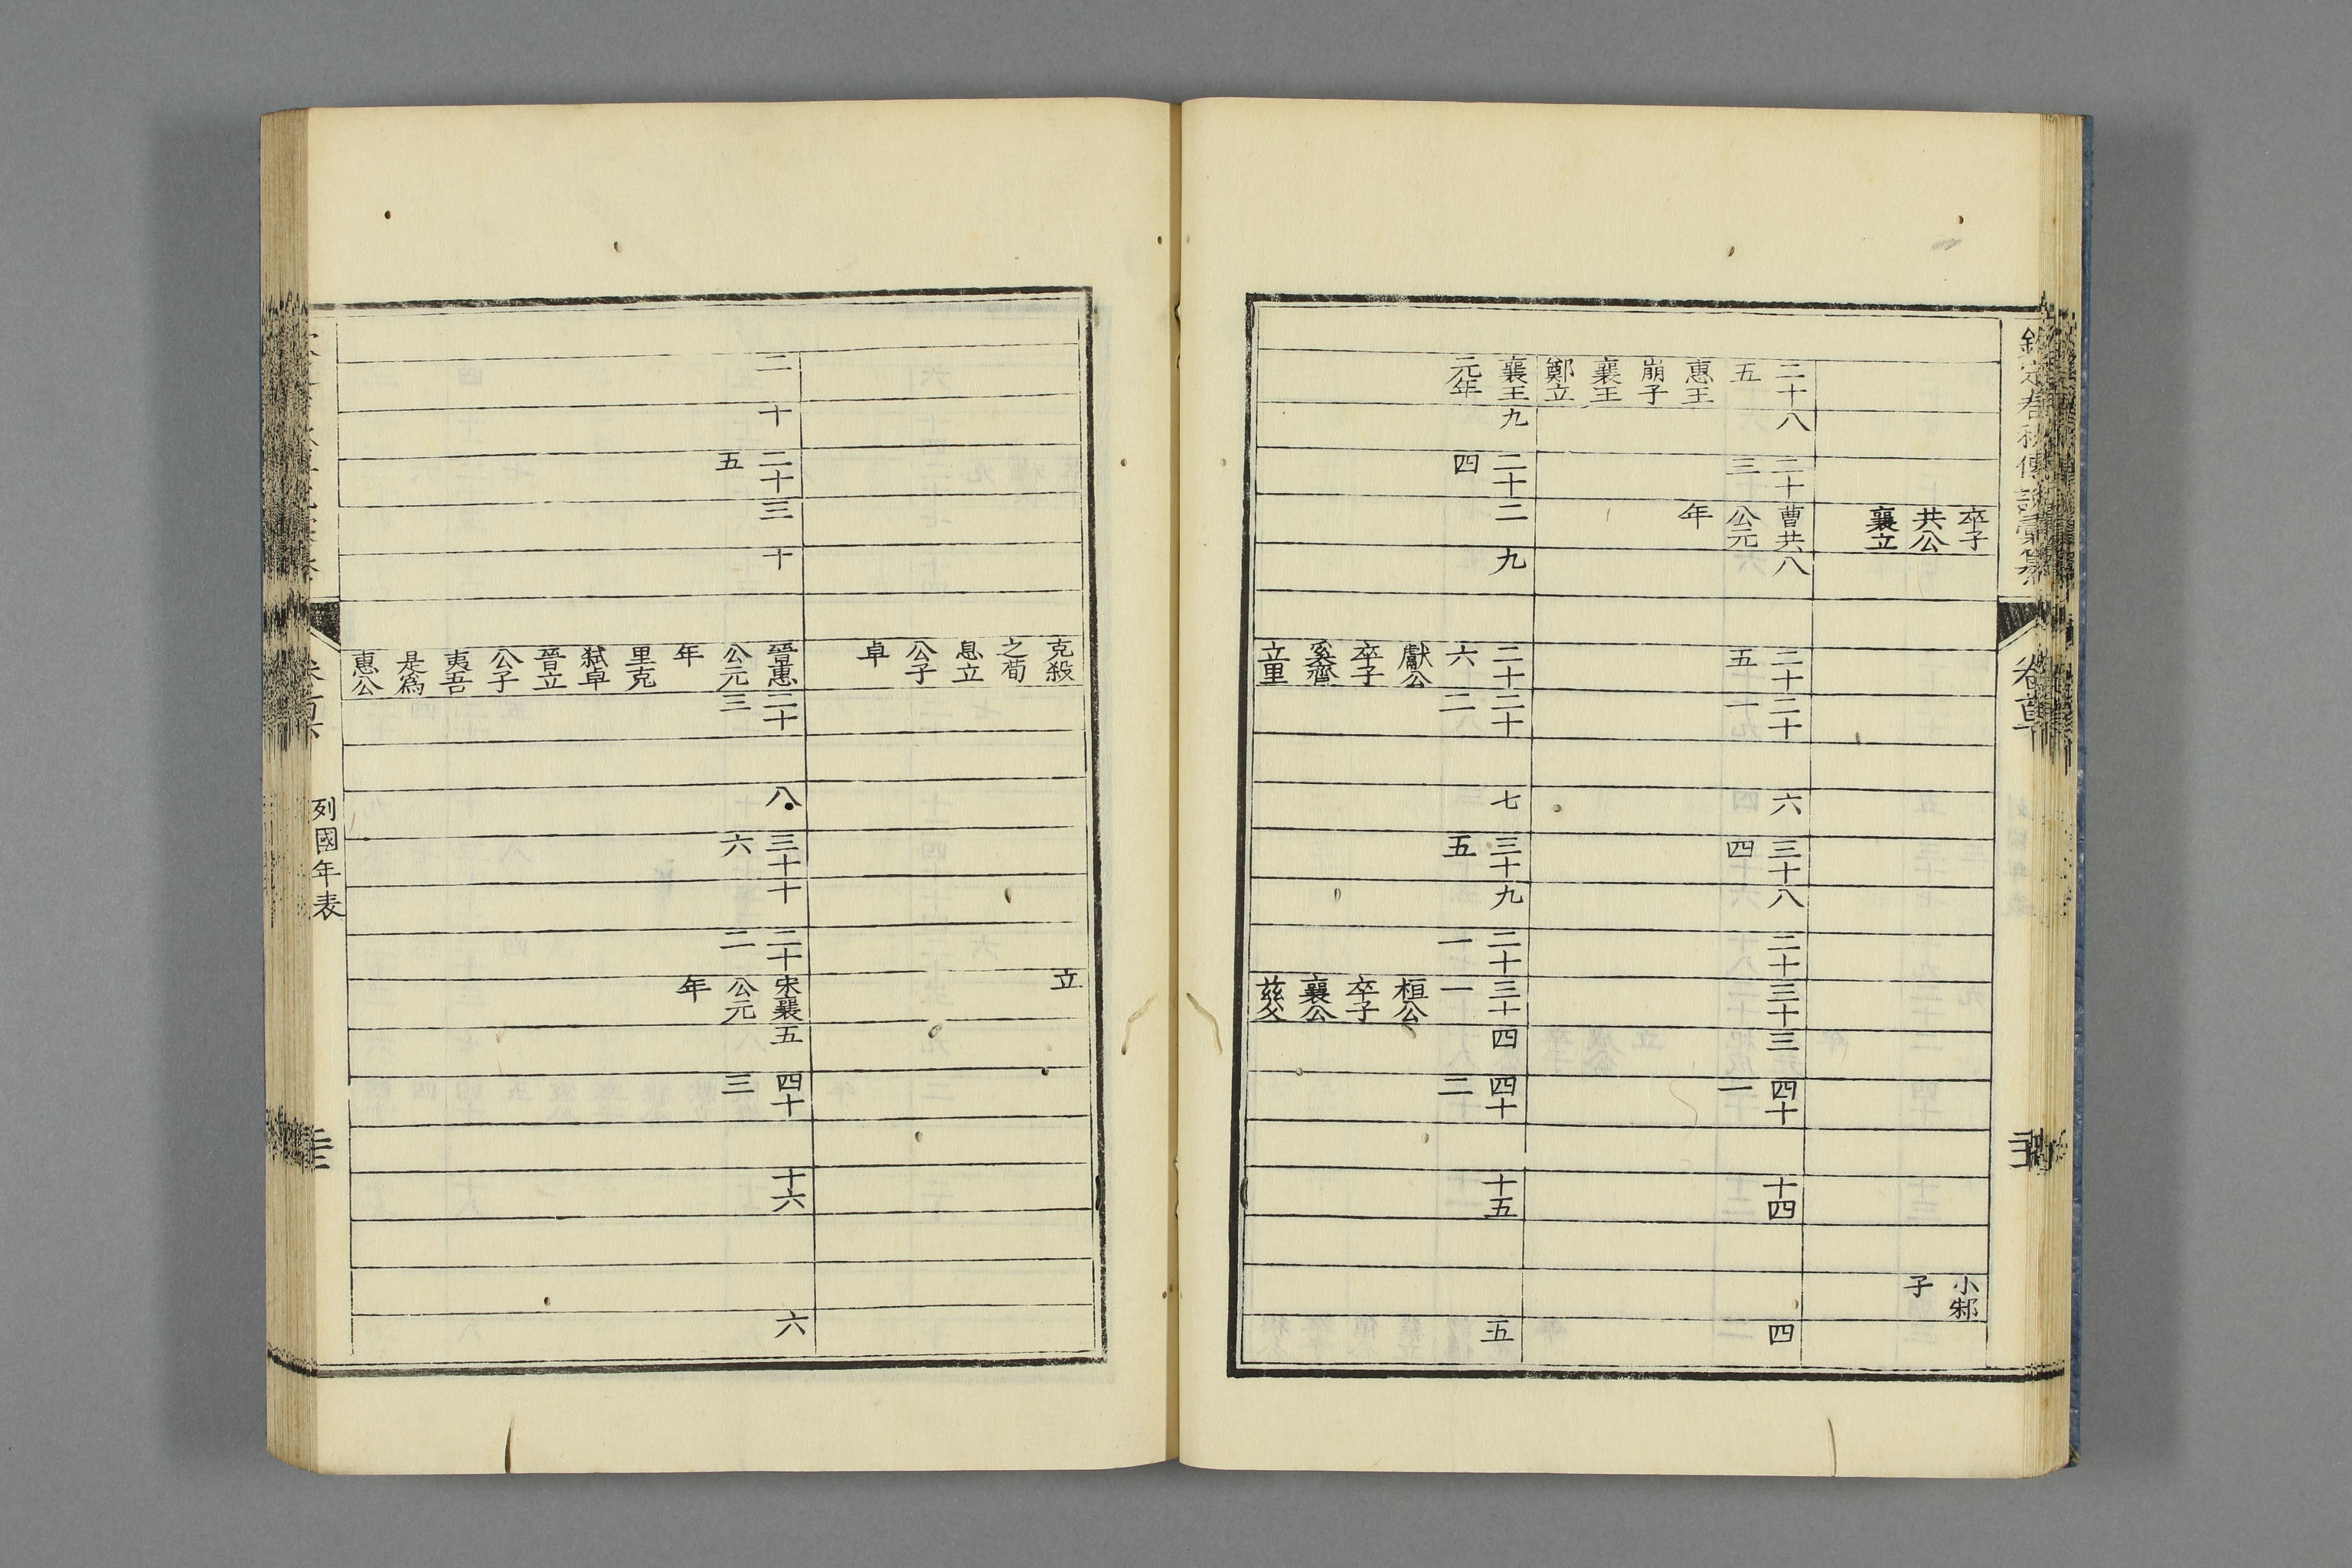 欽定春秋傳說彙纂
卷首
卒子
共公
襄立
小邾
子
二十
五
惠王
崩子
襄王
鄭立
八
二十
三
曹共
公元
年
八
二十
五
二十
一
六
三十
四
八
二十
三十
三
四十
一
十四
四
襄王
元年
九
二十
四
二
九
二十
六
獻公
卒子
奚齊
立里
二十
二
七
三十
五
九
二十
一
三十
一
桓公
卒子
襄公
茲父
四
四十
二
十五
五
克殺
之荀
息立
公子
卓
立
二
十
二十
五
三
十
晉惠
公元
年
里克
弑卓
晉立
公子
夷吾
是爲
惠公
二十
三
八
三十
六
十
二十
二
宋襄
公元
年
五
四十
三
十六
六
列國年表